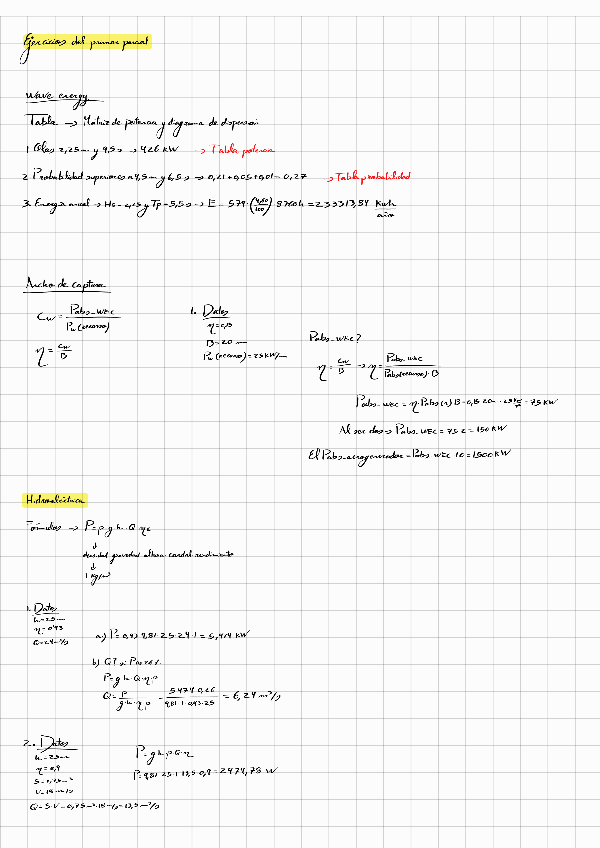 Ejercicios del primer parcial
Wave energy
Tabla → Matriz de potencia y diagrama de dispersión
1. Olas 2,25m y 9,5s → 426 kW → Tabla potencia
2. Probabilidad superiores a 4,5m y 6,5s → 0,21+0,05+0,01=0,27 → Tabla probabilidad
3. Energía anual → Hs = 4,25 y Tp = 5,5s → E = 579·(4,60/100)·8760h = 233313,84 Kwh/año
Ancho de captura
Cw = Pabs_WEC / Pw (recurso)
η = Cw / B
1. Datos
η=0,15
B=20m
Pw (recurso) = 25kW/m
Pabs_WEC?
η = Cw/B → η = Pabs_WEC / Pabs(recurso)·B
Pabs_WEC = η·Pabs(r)·B = 0,15·20m·25 kW/m = 75 KW
Al ser dos → Pabs_WEC = 75·2 = 150 KW
El Pabs_aerogenerador = Pabs_WEC·10 = 1500 KW
Hidroeléctrica
Fórmulas → P = ρ·g·h·Q·η
densidad gravedad altura caudal rendimiento
1 Kg/m³
1. Datos
h=25m
η=0,93
Q=24m³/s
a) P=0,93·9,81·25·24·1 = 5,474 KW
b)
P=g·h·Q·η·ρ
Q = P / g·h·η·ρ = 5474·0,26 / 9,81·1·0,93·25 = 6,24 m³/s
2. Datos
h=25m
η=0,9
S=0,75m²
V=18m/s
Q=S·V=0,75m²·18m/s=13,5m³/s
P=g·h·ρ·Q·η
P=9,81·25·1·13,5·0,9=2979,78 W